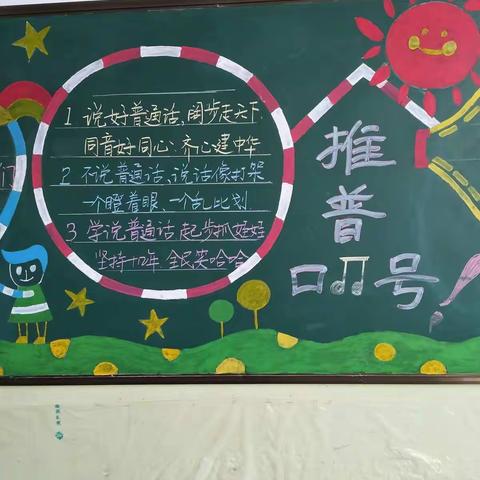 1 说好普通话,阔步走天下.
同音好同心、齐心建中华
2 不说普通话、说话像打架
一个瞪着眼、一个乱比划
3 学说普通话 起步抓娃娃
坚持 年 全民笑哈哈
推
普
口号!
们